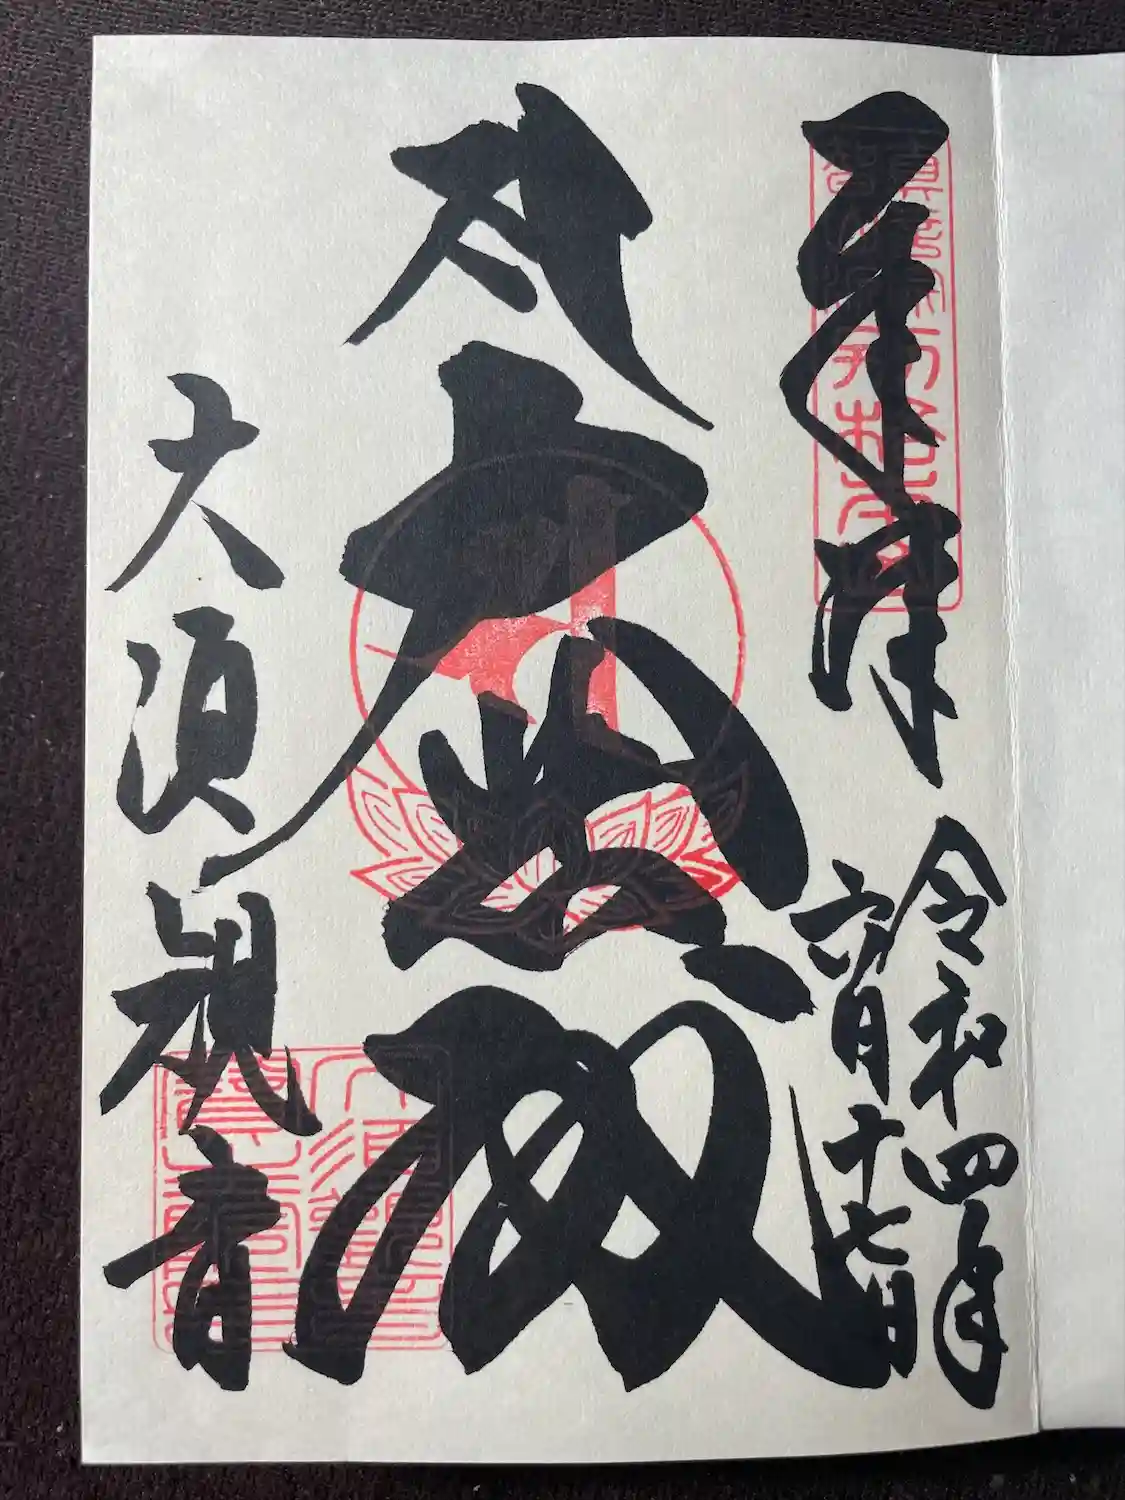 奉拝
令和四年
六月十七日
大悲殿
大須観音